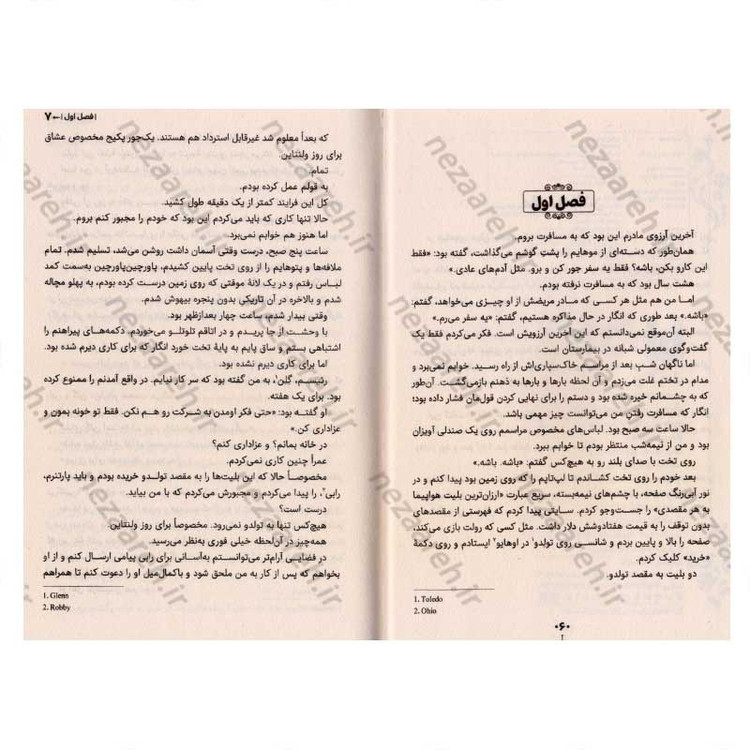 فصل اول
آخرین آرزوی مادرم این بود که به مسافرت بروم.
همان‌طور که دسته‌ای از موهایم را پشتِ گوشم می‌گذاشت، گفته بود: «فقط
این کارو بکن، باشه؟ فقط یه سفر جور کن و برو. مثل آدم‌های عادی.»
هشت سال بود که به مسافرت نرفته بودم.
اما من هم مثل هر کسی که مادر مریضش از او چیزی می‌خواهد، گفتم:
«باشه.» بعد طوری که انگار در حال مذاکره هستیم، گفتم: «یه سفر می‌رم.»
البته آن‌موقع نمی‌دانستم که این آخرین آرزویش است. فکر می‌کردم فقط یک
گفت‌وگوی معمولی شبانه در بیمارستان است.
اما ناگهان شب بعد از مراسم خاک‌سپاری‌اش از راه رسید. خوابم نمی‌برد و
مدام در تختم غلت می‌زدم و آن لحظه بارها و بارها به ذهنم بازمی‌گشت. آن‌طور
که به چشمانم خیره شده بود و دستم را برای نهایی کردن قول‌مان فشار داده بود؛
انگار که مسافرت رفتنِ من می‌توانست چیز مهمی باشد.
حالا ساعت سه صبح بود. لباس‌های مخصوص مراسمم روی یک صندلی آویزان
بود و من از نیمه‌شب منتظر بودم تا خوابم ببرد.
روی تخت با صدای بلند رو به هیچ‌کس گفتم: «باشه. باشه.»
بعد خودم را روی تخت کشاندم تا لپ‌تاپم را کف زمین پیدا کنم و در
نور آبی‌رنگ صفحه، با چشم‌های نیمه‌بسته، سریع عبارت «ارزان‌ترین بلیت هواپیما
به هر مقصدی» را جست‌وجو کردم. سایتی پیدا کردم که فهرستی از مقصدهای
بدون توقف را به قیمت هفتادوشش دلار داشت. مثل کسی که رولت بازی می‌کند،
صفحه را بالا و پایین بردم و شانسی روی تولدو۱ در اوهایو۲ ایستادم و روی دکمهٔ
«خرید» کلیک کردم.
دو بلیت به مقصد تولدو.
1. Toledo
2. Ohio
۰۶۰
| فصل اول | ۷
که بعداً معلوم شد غیرقابل استرداد هم هستند. یک‌جور پکیج مخصوص عشاق
برای روز ولنتاین.
تمام.
به قولم عمل کرده بودم.
کل این فرایند کمتر از یک دقیقه طول کشید.
حالا تنها کاری که باید می‌کردم این بود که خودم را مجبور کنم بروم.
اما هنوز هم خوابم نمی‌برد.
ساعت پنج صبح، درست وقتی آسمان داشت روشن می‌شد، تسلیم شدم. تمام
ملافه‌ها و پتوهایم را از روی تخت پایین کشیدم، پاورچین‌پاورچین به‌سمت کمد
لباس رفتم و در یک لانهٔ موقتی که روی زمین درست کرده بودم، به پهلو مچاله
شدم و بالاخره در آن تاریکیِ بدون پنجره بیهوش شدم.
وقتی بیدار شدم، ساعت چهار بعدازظهر بود.
با وحشت از جا پریدم و در اتاقم تلوتلو می‌خوردم. دکمه‌های پیراهنم را
اشتباهی بستم و ساق پایم به پایهٔ تخت خورد انگار که برای کاری دیرم شده بود.
اما برای کاری دیرم نشده بود.
رئیسم، گلن۱، به من گفته بود که سر کار نیایم. در واقع آمدنم را ممنوع کرده
بود. برای یک هفته.
او گفته بود: «حتی فکر اومدن به شرکت رو هم نکن. فقط تو خونه بمون و
عزاداری کن.»
در خانه بمانم؟ و عزاداری کنم؟
عمراً چنین کاری نمی‌کردم.
مخصوصاً حالا که این بلیت‌ها را به مقصد تولدو خریده بودم و باید پارتنرم،
رابی۲، را پیدا می‌کردم و مجبورش می‌کردم که با من بیاید.
درست است؟
هیچ‌کس تنها به تولدو نمی‌رود. مخصوصاً برای روز ولنتاین.
همه‌چیز در آن لحظه خیلی فوری به‌نظر می‌رسید.
در فضایی آرام‌تر می‌توانستم به‌آسانی برای رابی پیامی ارسال کنم و از او
بخواهم که پس از کار به من ملحق شود و باکمال‌میل او را دعوت کنم تا همراهم
1. Glenn
2. Robby
nezaareh.ir